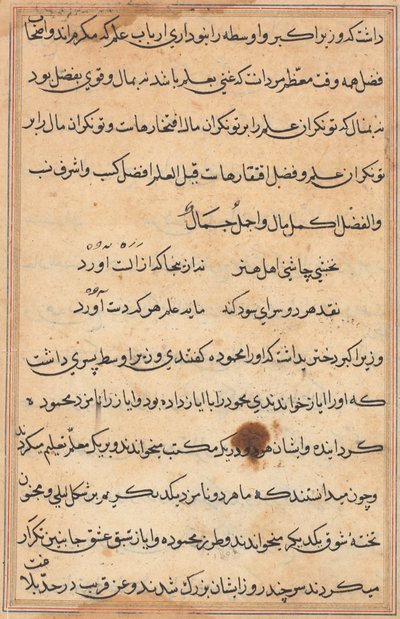 داشت که وزیر اکبر و اوسطه را بنوداری ارباب علم که مکرم اند و اصحاب
فضل همه وقت معظم مردانست که غنی بعلم باشد نه بمال و قوی بفضل بود
نه بمثال که توانکران علم را بر توانکران مال افتخارهاست و توانکران مال را بر
توانکران علم و فضل افتقارهاست قیل العلم افضل کسب و اشرف نسب
والفضل اکمل مال و اجمل جمال
نخشبی چاشنی اهل هنر نداند بجا که از الت آورد
نقد هر دو سرای سود کند مایه علم هر که دست آورد
وزیر اکبر دختر بداشت که او را محموده کفتندی وزیر اوسط پسری داشت
که او را ایاز خواندندی محمود را با ایاز داده بود و ایاز را نامزد محموده
کردانیده و ایشان هر دو در یک مکتب میخواندند و بر یک معلم تعلیم میکردند
و چون میدانستند که ما هر دو نامزد یکدیکریم بر شکل لیلی و مجنون
تختهٔ شوق یکدیکر میخواندند و طرز محموده و ایاز سبق عشق جانبین تکرار
میکردند سر چند روز ایشان بزرک شدند و عن قریب در حد بلاغت